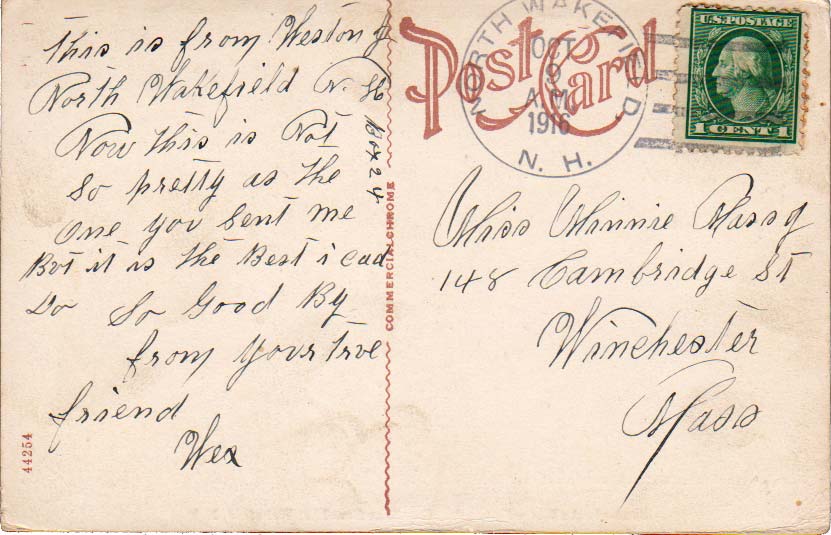 this is from Weston J
North Wakefield N. H
Box 24
Now this is Not
So pretty as the
one you Sent me
But it is the Best i cad
Do So Good By
from Your true
friend
Wes
44254
COMMERCIALCHROME
Post Card
NORTH WAKEFIELD,
OCT
9
A.M.
1916
N. H.
U.S. POSTAGE
1 CENT 1
Miss Minnie
148 Cambridge St
Winchester
Mass